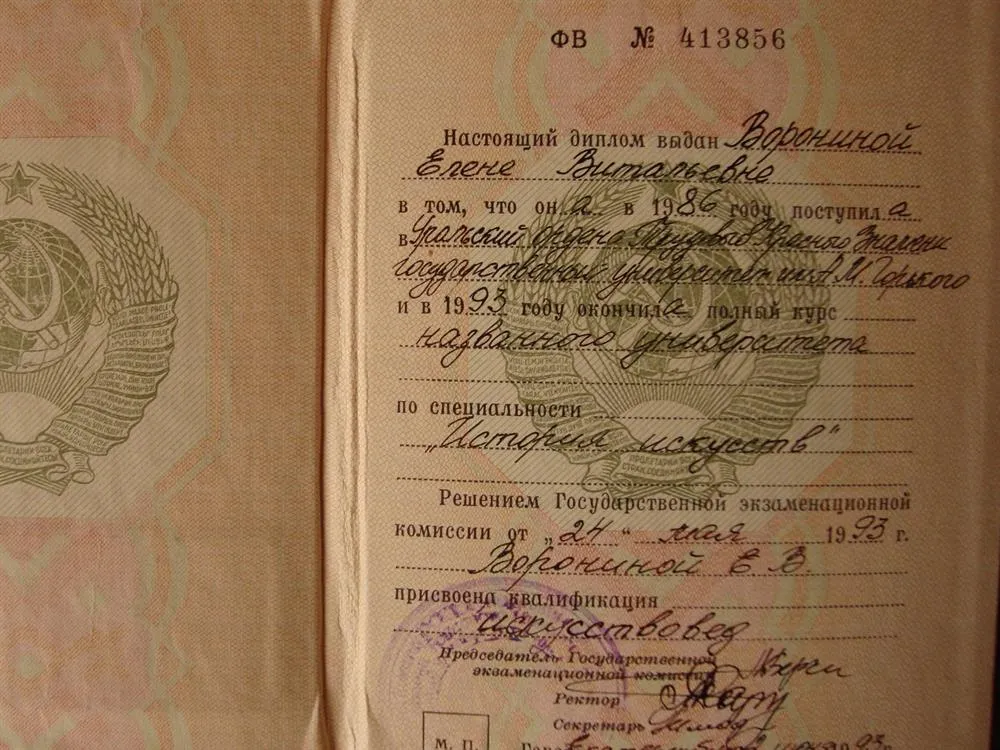 ФВ № 413856
Настоящий диплом выдан Ворониной
Елене Витальевне
в том, что она в 1986 году поступила
в Уральский ордена Трудового Красного Знамени
государственный университет им. А. М. Горького
и в 1993 году окончила полный курс
названного университета
по специальности
„История искусств“
Решением Государственной экзаменационной
комиссии от „24“ мая 1993 г.
Ворониной Е. В.
присвоена квалификация
искусствовед
Председатель Государственной
экзаменационной комиссии
Ректор
Секретарь
М. П.
93